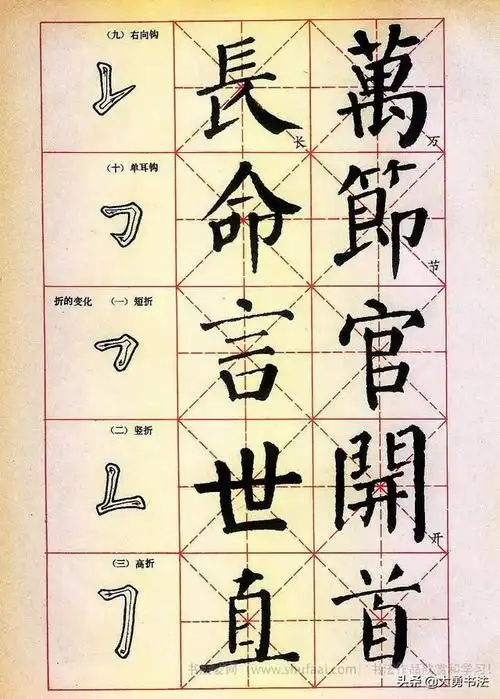 （九）右向钩
長 长
萬 万
（十）单耳钩
命
節 节
折的变化 （一）短折
言
官
（二）竖折
世
開 开
（三）高折
直
首
书法爱网（www.shufaai.com） 书法作品欣赏和学习！
头条@大勇书法